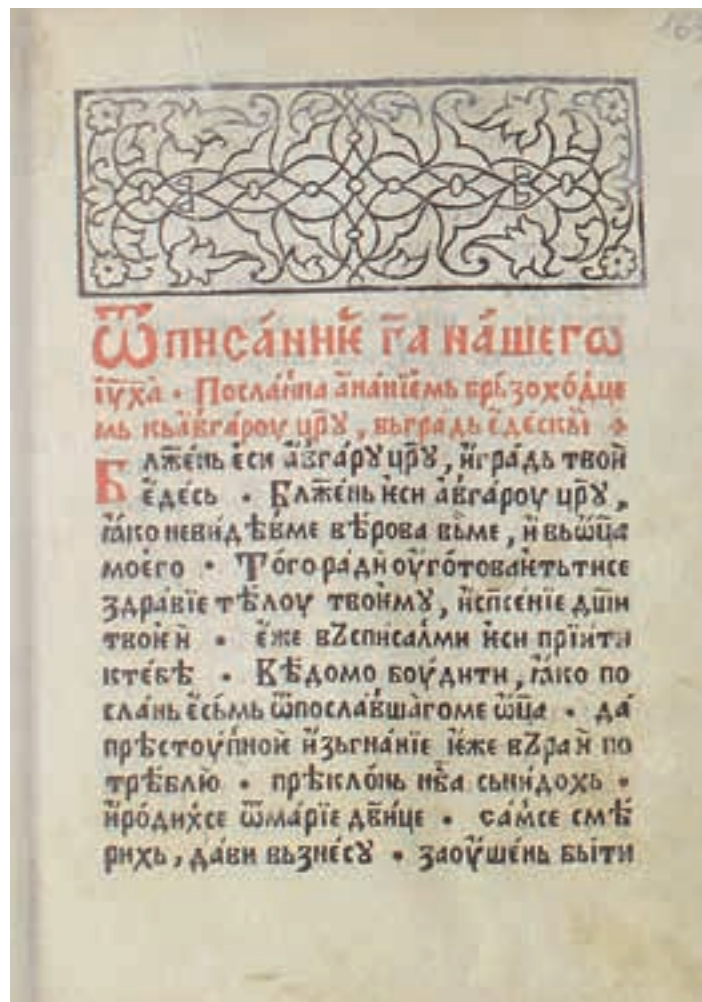 163
Ѿписа́нни҄е г҃а на́шегѡ
і҆у҃ха̀ • Посла́нна а҆на́нїемь брьзохо́дце
мь кьа҆вга́роу цр҃у , вьгра́дь є҆де́скы́и
Бл҃же́нь е҆си а҆вга́рꙋ цр҃ꙋ , и҆гра́дь твои҆
є҆де́сь • Бл҃же́нь ѥси а҆вга́роу цр҃ꙋ ,
ꙗ҆́ко неви́дѣвме вѣ́рова вь́ме , и҆ вьѡ҆ц҃а
моє́го • То́го ра́ди оу҆гото́ваѥтьтисе
здра́вїе тѣ́лоу твоѥ́мꙋ , и҆сп҃се́нїе дш҃и
твоѥ́и • є҆́же вꙁсписа́лми ѥси прїи́ти
кте́бѣ • Вѣ́домо боу́дити , ꙗ҆́ко по
сла́нь є҆сьмь ѿпосла́вшагоме ѡ҆ц҃а • да́
прѣстоу́пной и҆зьгна́нїе ѥ҆́же вꙁра́и по
трѣблю̀ • прѣкло́нь нб҃а сьни́дохь •
и҆ро́дихсе ѿма́рїе дв҃и́це • са́мсе смѣ́
рихь , да́ви вьзнесꙋ • заоу҆ше́нь бы́ти